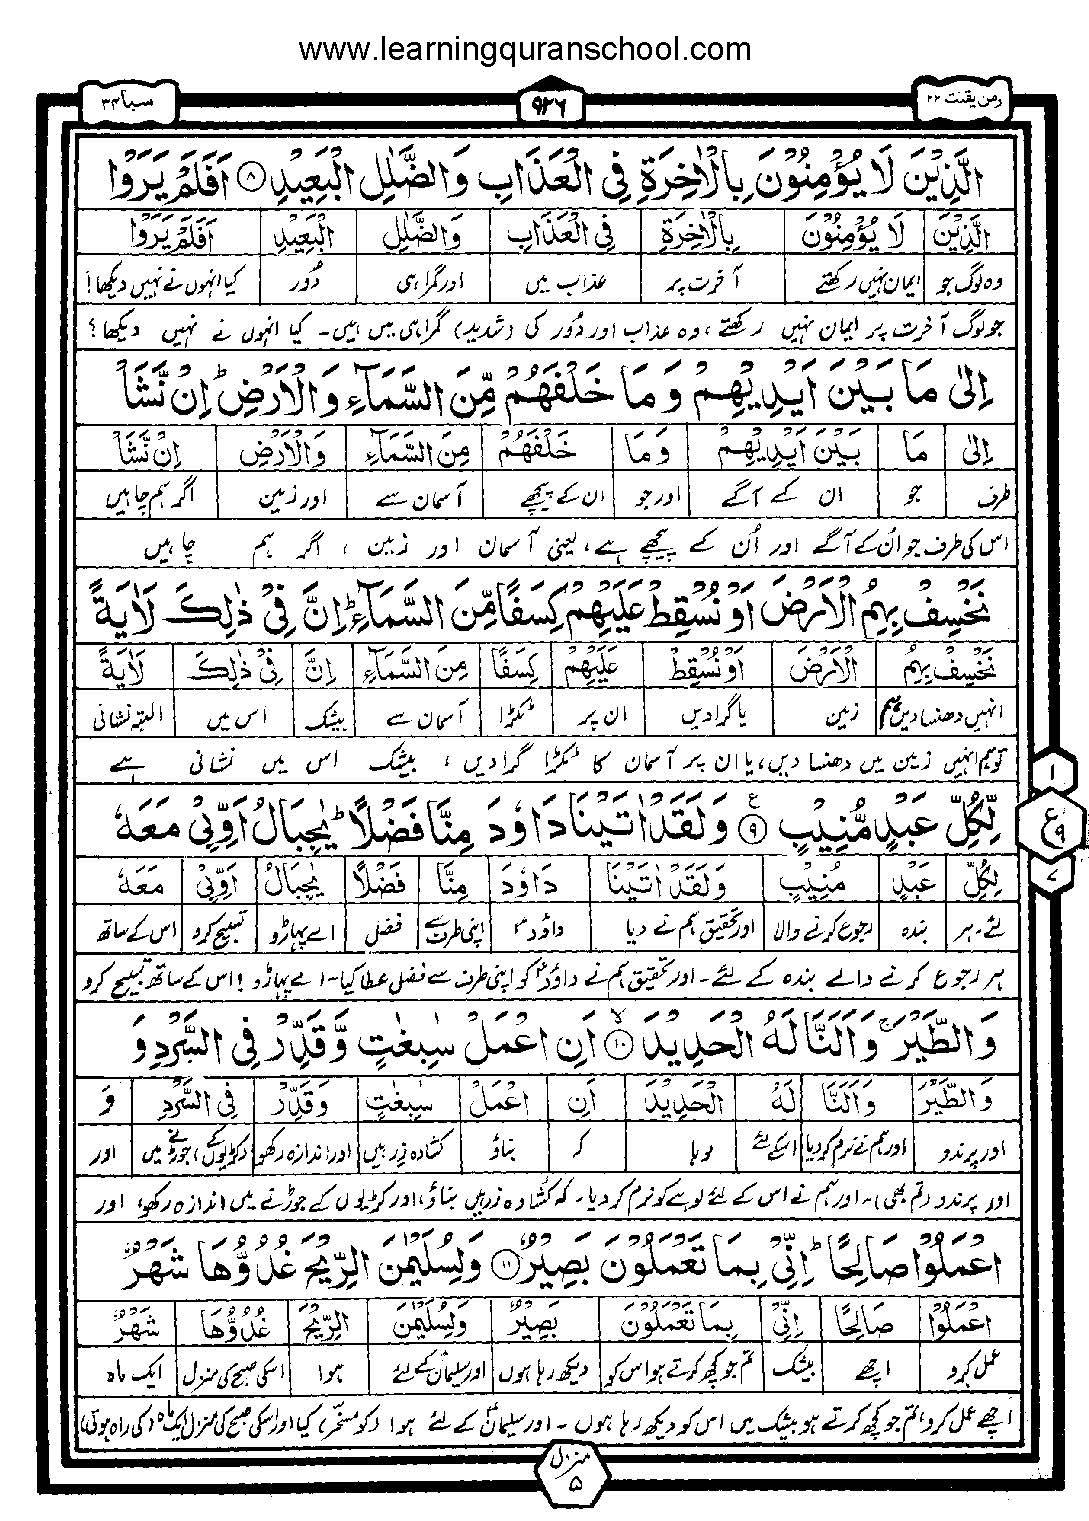 www.learningquranschool.com
ومن یقنت ۲۲
۹۲۶
سبا ۳۴
الَّذِيْنَ لَا يُؤْمِنُوْنَ بِالْاٰخِرَةِ فِي الْعَذَابِ وَالضَّلٰلِ الْبَعِيْدِ ۸ اَفَلَمْ يَرَوْا
الَّذِيْنَ لَا يُؤْمِنُوْنَ بِالْاٰخِرَةِ فِي الْعَذَابِ وَالضَّلٰلِ الْبَعِيْدِ اَفَلَمْ يَرَوْا
وہ لوگ جو ایمان نہیں رکھتے آخرت پر عذاب میں اور گمراہی دُور کیا انہوں نے نہیں دیکھا!
جو لوگ آخرت پر ایمان نہیں رکھتے، وہ عذاب اور دُور کی (شدید) گمراہی میں ہیں۔ کیا انہوں نے نہیں دیکھا؟
اِلٰى مَا بَيْنَ اَيْدِيْهِمْ وَمَا خَلْفَهُمْ مِّنَ السَّمَآءِ وَالْاَرْضِ ؕ اِنْ نَّشَاْ
اِلٰى مَا بَيْنَ اَيْدِيْهِمْ وَمَا خَلْفَهُمْ مِنَ السَّمَآءِ وَالْاَرْضِ اِنْ نَّشَاْ
طرف جو ان کے آگے اور جو ان کے پیچھے آسمان سے اور زمین اگر ہم چاہیں
اس کی طرف جو اُن کے آگے اور اُن کے پیچھے ہے، یعنی آسمان اور زمین، اگر ہم چاہیں
نَخْسِفْ بِهِمُ الْاَرْضَ اَوْ نُسْقِطْ عَلَيْهِمْ كِسَفًا مِّنَ السَّمَآءِ ؕ اِنَّ فِيْ ذٰلِكَ لَاٰيَةً
نَخْسِفْ بِهِمُ الْاَرْضَ اَوْ نُسْقِطْ عَلَيْهِمْ كِسَفًا مِنَ السَّمَآءِ اِنَّ فِيْ ذٰلِكَ لَاٰيَةً
انہیں دھنسا دیں ہم زمین یا گرا دیں ان پر ٹکڑا آسمان سے بیشک اس میں البتہ نشانی
تو ہم انہیں زمین میں دھنسا دیں، یا ان پر آسمان کا ٹکڑا گرا دیں، بیشک اس میں نشانی ہے
۱
لِّكُلِّ عَبْدٍ مُّنِيْبٍ ۹ ع وَلَقَدْ اٰتَيْنَا دَاوٗدَ مِنَّا فَضْلًا ؕ يٰجِبَالُ اَوِّبِيْ مَعَهٗ
ع ۹
۷
لِكُلِّ عَبْدٍ مُنِيْبٍ وَلَقَدْ اٰتَيْنَا دَاوٗدَ مِنَّا فَضْلًا يٰجِبَالُ اَوِّبِيْ مَعَهٗ
لئے۔ ہر بندہ رجوع کرنے والی اور تحقیق ہم نے دیا داوٗدؑ اپنی طرف سے فضل اے پہاڑو تسبیح کرو اس کے ساتھ
ہر رجوع کرنے والے بندہ کے لئے۔ اور تحقیق ہم نے داوٗدؑ کو اپنی طرف سے فضل عطا کیا۔ اے پہاڑو! اس کے ساتھ تسبیح کرو
وَالطَّيْرَ ۚ وَاَلَنَّا لَهُ الْحَدِيْدَ ۱۰ لا اَنِ اعْمَلْ سٰبِغٰتٍ وَّقَدِّرْ فِي السَّرْدِ وَ
وَالطَّيْرَ وَاَلَنَّا لَهُ الْحَدِيْدَ اَنِ اعْمَلْ سٰبِغٰتٍ وَقَدِّرْ فِي السَّرْدِ وَ
اور پرندو اور ہم نے نرم کر دیا اسکے لئے لوہا کہ بناؤ کشادہ زرہیں اور اندازہ رکھو (کڑیوں کے) جوڑنے میں اور
اور پرندو (تم بھی)۔ اور ہم نے اس کے لئے لوہے کو نرم کر دیا۔ کہ کشادہ زرہیں بناؤ، اور کڑیوں کے جوڑنے میں اندازہ رکھو، اور
اعْمَلُوْا صَالِحًا ؕ اِنِّيْ بِمَا تَعْمَلُوْنَ بَصِيْرٌ ۱۱ وَلِسُلَيْمٰنَ الرِّيْحَ غُدُوُّهَا شَهْرٌ
اعْمَلُوْا صَالِحًا اِنِّيْ بِمَا تَعْمَلُوْنَ بَصِيْرٌ وَلِسُلَيْمٰنَ الرِّيْحَ غُدُوُّهَا شَهْرٌ
عمل کرو اچھے بیشک تم جو کچھ کرتے ہو اس کو دیکھ رہا ہوں اور سلیمانؑ کے لئے ہوا اسکی صبح کی منزل ایک ماہ
اچھے عمل کرو، تم جو کچھ کرتے ہو بیشک میں اس کو دیکھ رہا ہوں۔ اور سلیمانؑ کے لئے ہوا (کو مسخر) کیا اور اسکی صبح کی منزل ایک ماہ (کی راہ ہوتی)
منزل ۵